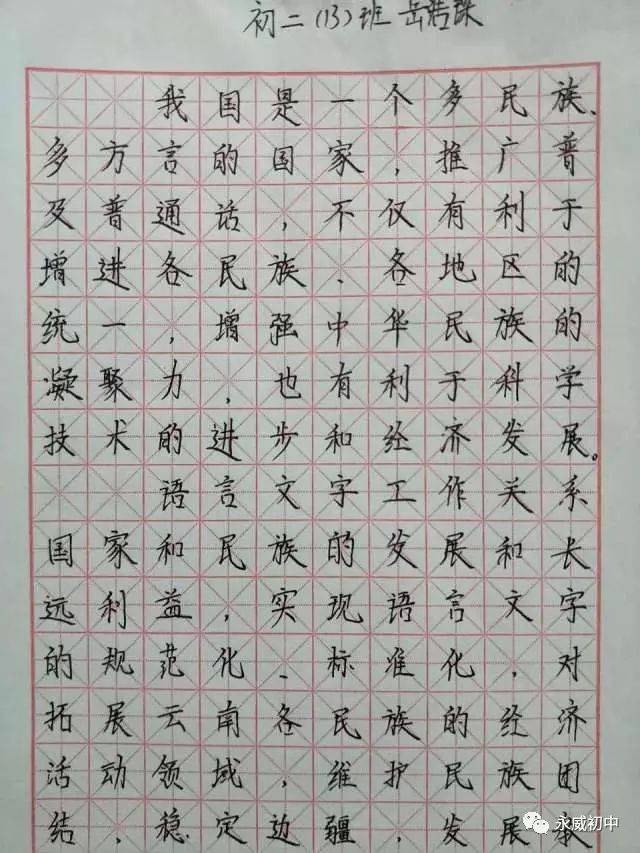 初二(13)班 岳
我国是一个多民族、
多方言的国家，推广普
及普通话，不仅有利于
增进各民族、各地区的
统一，增强中华民族的
凝聚力，也有利于科学
技术的进步和经济发展。
语言文字工作关系
国家和民族的发展和长
远利益，实现语言文字
的规范化、标准化，对
拓展云南各民族的经济
活动领域，维护民族团
结，稳定边疆，发展
永威初中